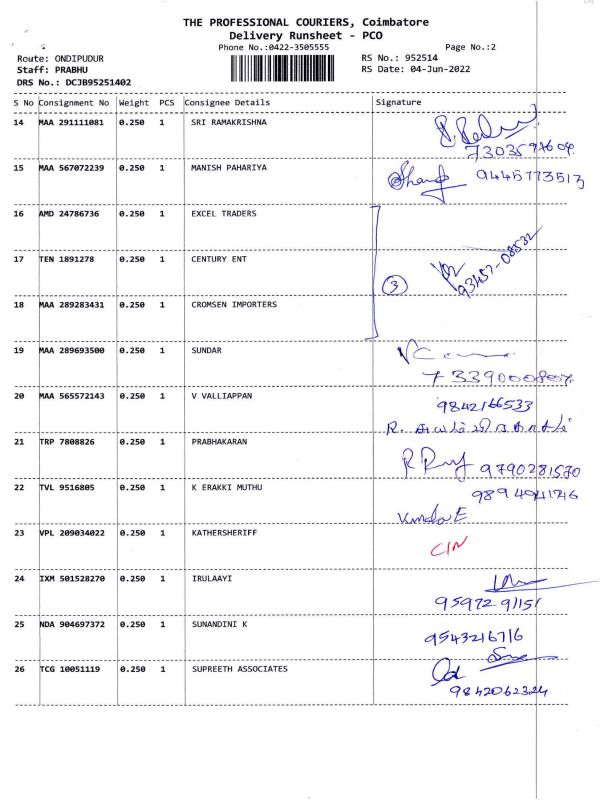 THE PROFESSIONAL COURIERS, Coimbatore
Delivery Runsheet - PCO
Phone No.:0422-3505555 Page No.:2
Route: ONDIPUDUR RS No.: 952514
Staff: PRABHU RS Date: 04-Jun-2022
DRS No.: DCJB95251402
S No Consignment No Weight PCS Consignee Details Signature
14 MAA 291111081 0.250 1 SRI RAMAKRISHNA
15 MAA 567072239 0.250 1 MANISH PAHARIYA 9445773513
16 AMD 24786736 0.250 1 EXCEL TRADERS
17 TEN 1891278 0.250 1 CENTURY ENT
3 93457-08532
18 MAA 289283431 0.250 1 CROMSEN IMPORTERS
19 MAA 289693500 0.250 1 SUNDAR
20 MAA 565572143 0.250 1 V VALLIAPPAN 9842166533
21 TRP 7808826 0.250 1 PRABHAKARAN
9790281570
22 TVL 9516805 0.250 1 K ERAKKI MUTHU
23 VPL 209034022 0.250 1 KATHERSHERIFF
C/N
24 IXM 501528270 0.250 1 IRULAAYI
95972 91151
25 NDA 904697372 0.250 1 SUNANDINI K
9543216716
26 TCG 10051119 0.250 1 SUPREETH ASSOCIATES
9842062324